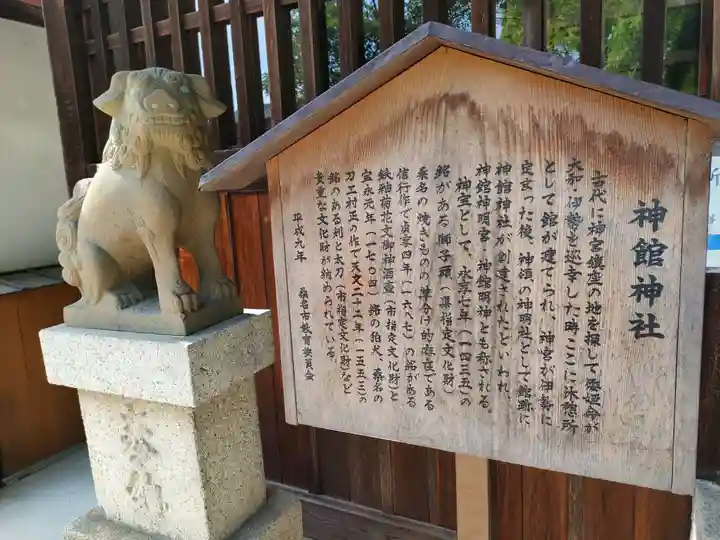 神館神社
古代に神宮鎮座の地を探して倭姫命が
大和・伊勢を巡幸した時ここに休憩所
として館が建てられ、神宮が伊勢に
定まった後、神領の神明社として館跡に
神館神社が創建されたといわれ
神館神明宮、神館明神とも称される。
神宝として、永享七年(一四三五)の
銘がある獅子頭(県指定文化財)
桑名の焼きものの草分け的存在である
信行作で貞享四年(一六八七)の銘がある
鉄釉菊花文御神酒壷(市指定文化財)と
宝永元年(一七〇四)銘の狛犬、桑名の
刀工村正の作で天文二十二年(一五五三)の
銘のある剣と太刀(市指定文化財)など
貴重な文化財が納められている。
平成九年 桑名市教育委員会